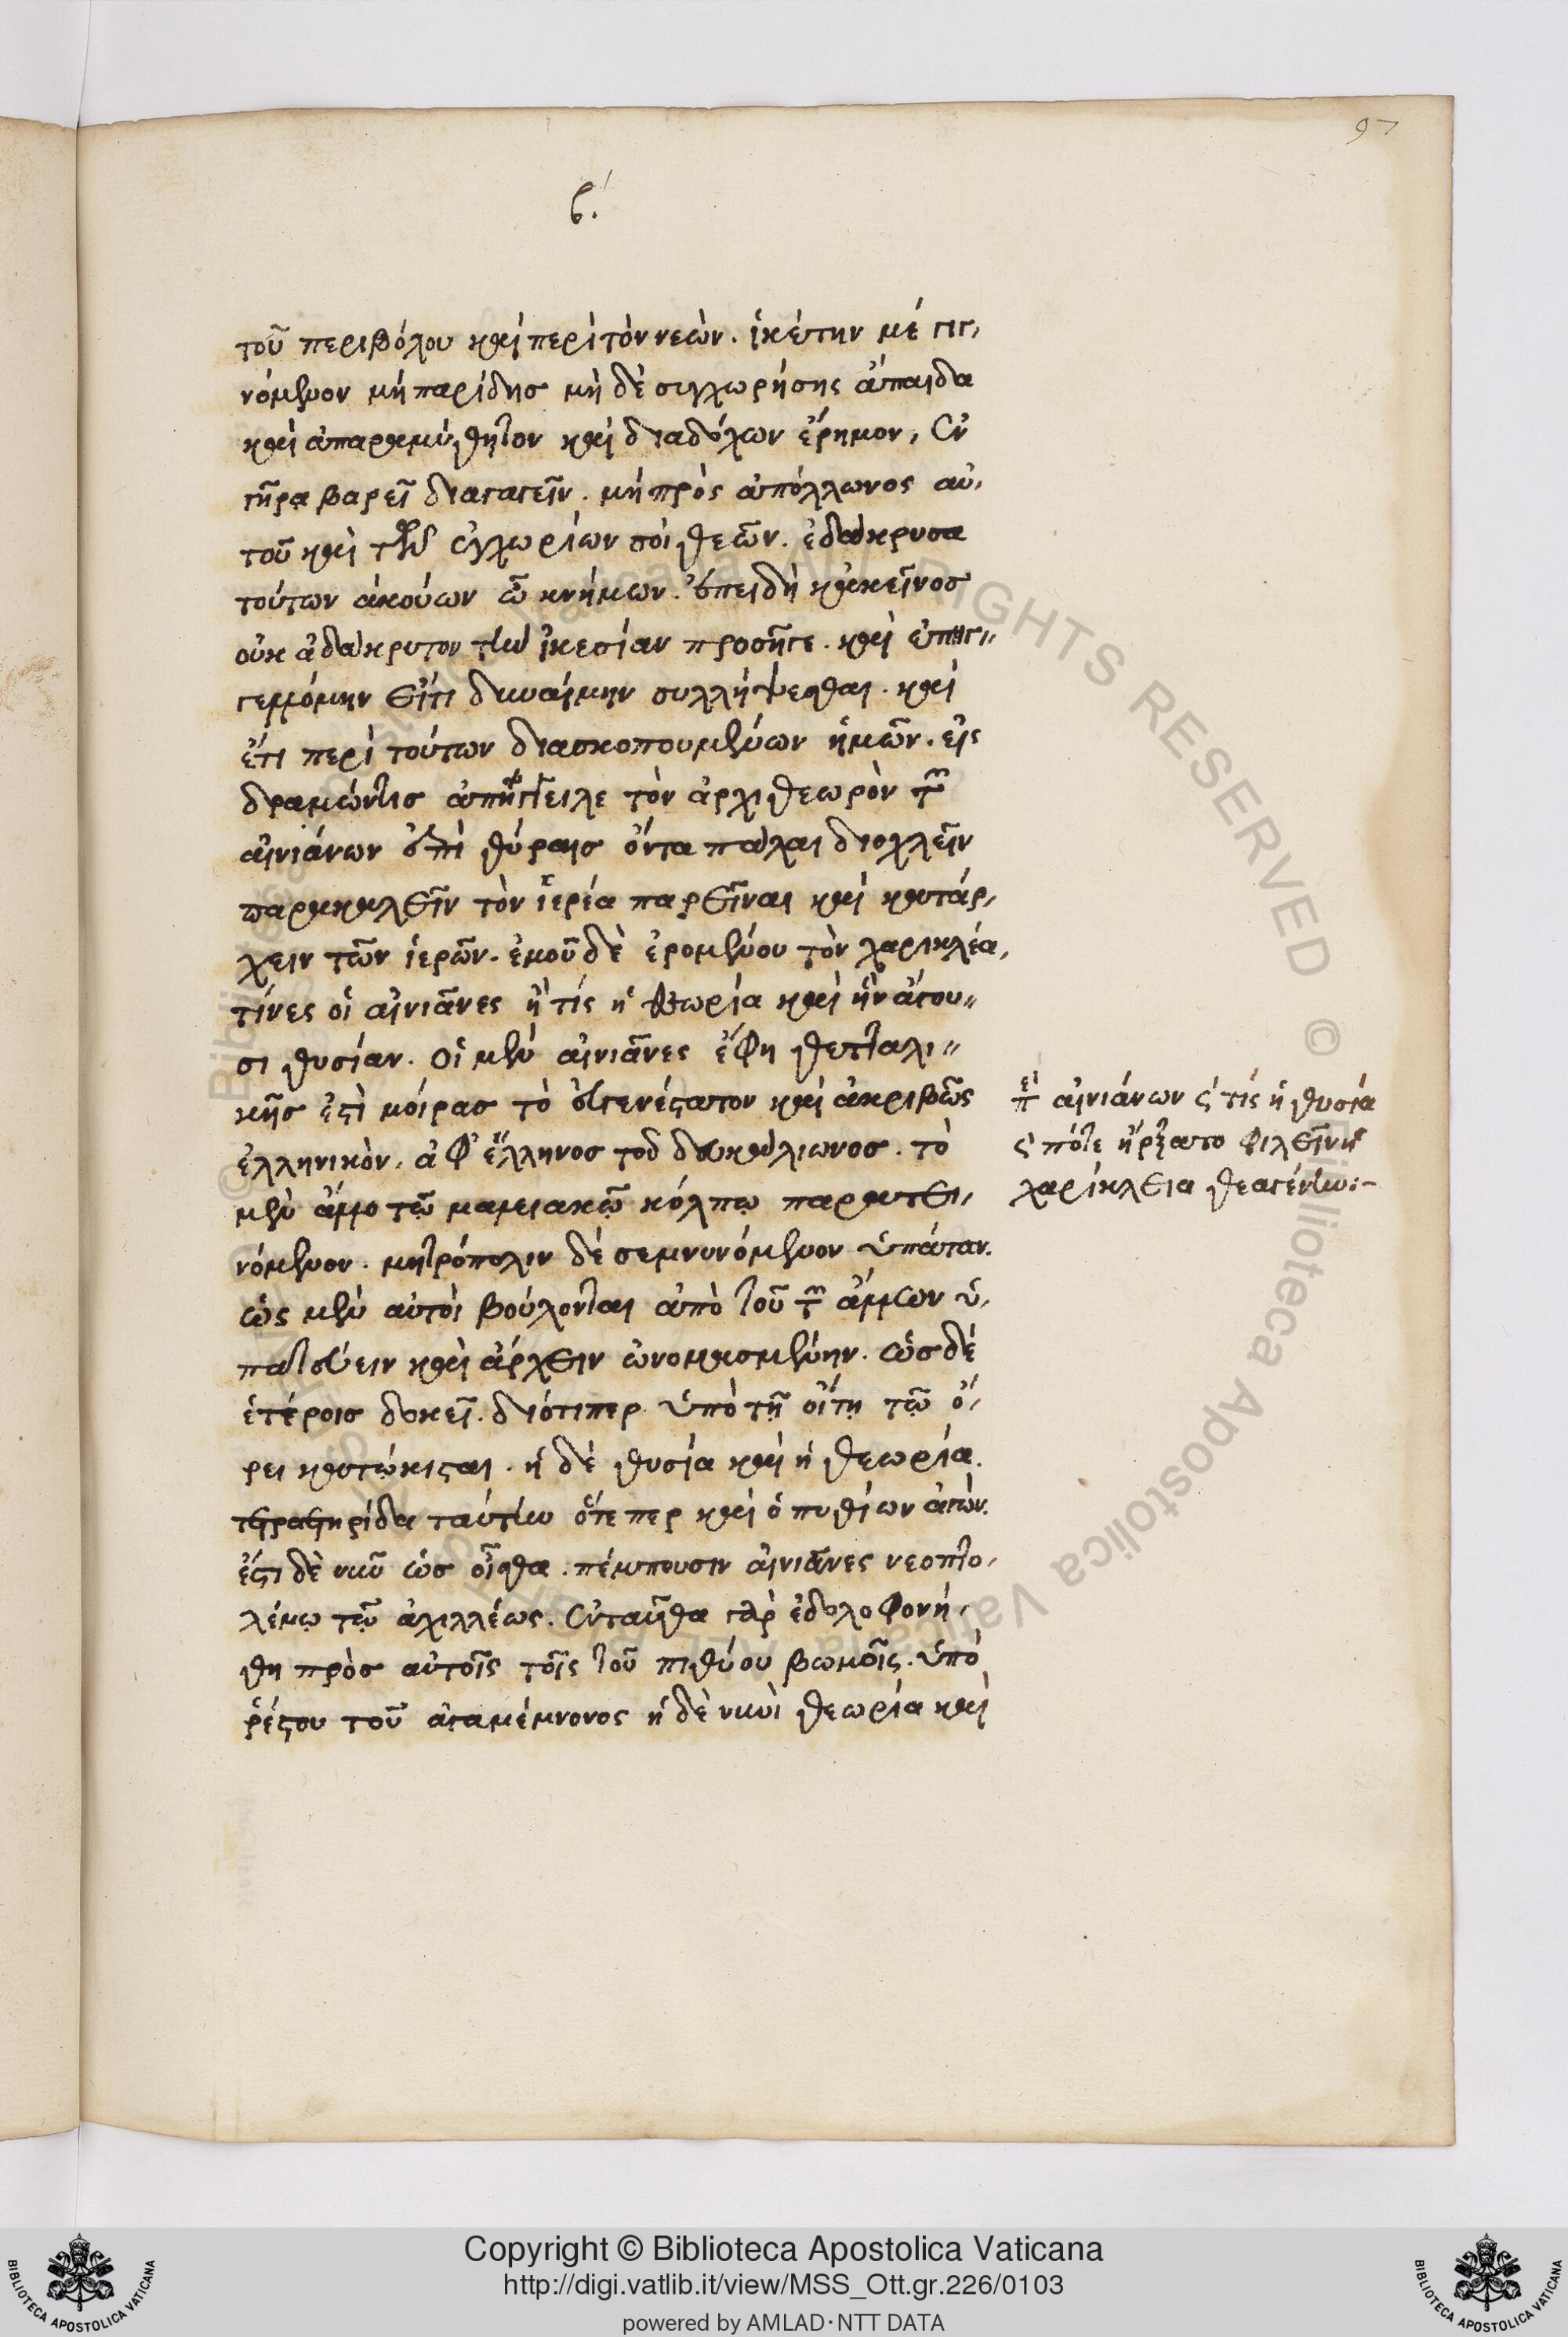 97
β'.
τοῦ περιβόλου καὶ περὶ τὸν νεών. ἱκέτην μέ γιγ,
νόμενον μὴ παρίδης μὴ δὲ συγχωρήσης ἄπαιδα
καὶ ἀπαραμύθητον καὶ διαδόχων ἔρημον, ἐν
γῆρα βαρεῖ διαγαγεῖν. μὴ πρὸς ἀπόλλωνος αὐ,
τοῦ καὶ τῶν ἐγχωρίων σοὶ θεῶν. ἐδάκρυσα
τούτων ἀκούων ὦ κνήμων. ἐπειδὴ κἀκεῖνος
οὐκ ἀδάκρυτον τὴν ἱκεσίαν προσῆγε. καὶ ἐπηγ,,
γελλόμην εἴτι δυναίμην συλλήψεσθαι. καὶ
ἔτι περὶ τούτων διασκοπουμένων ἡμῶν. εἰς
δραμών τις ἀπήγγειλε τὸν ἀρχιθεωρὸν τῶν
αἰνιάνων ἐπὶ θύραις ὄντα πάλαι διοχλεῖν
παρακαλεῖν τὸν ἱερέα παρεῖναι καὶ κατάρ,
χειν τῶν ἱερῶν. ἐμοῦ δὲ ἐρομένου τὸν χαρικλέα,
τίνες οἱ αἰνιᾶνες ἢ τίς ἡ θεωρία καὶ ἣν ἄγου,,
σι θυσίαν. οἱ μὲν αἰνιᾶνες ἔφη θετταλι,,
κῆς ἐστὶ μοίρας τὸ εὐγενέστατον καὶ ἀκριβῶς
ἑλληνικὸν, ἀφ' ἕλληνος τοῦ δευκαλίωνος. τὸ
μὲν ἄλλο τῶ μαλιακῶ κόλπω παρατει,
νόμενον. μητρόπολιν δὲ σεμνυνόμενον ὑπάταν.
ὡς μὲν αὐτοὶ βούλονται ἀπὸ τοῦ τῶν ἄλλων ὑ,
πατεύειν καὶ ἄρχειν ὠνομασμένην. ὡς δὲ
ἑτέροις δοκεῖ. διότιπερ ὑπὸ τῆ οἴτη τῶ ὄ,
ρει κατώκισται. ἡ δὲ θυσία καὶ ἡ θεωρία.
τετραετηρίδα ταύτην ὅτε περ καὶ ὁ πυθίων ἀγών.
ἔστι δὲ νῦν ὡς οἶσθα. πέμπουσιν αἰνιᾶνες νεοπτο,
λέμω τῶ ἀχιλλέως. ἐνταῦθα γὰρ ἐδολοφονή,
θη πρὸς αὐτοῖς τοῖς τοῦ πιθύου βωμοῖς. ὑπὸ
ὀρέστου τοῦ ἀγαμέμνονος ἡ δὲ νυνὶ θεωρία καὶ
περὶ αἰνιάνων καὶ τίς ἡ θυσία
καὶ πότε ἤρξατο φιλεῖν ἡ
χαρίκλεια θεαγένην:-
© Biblioteca Apostolica Vaticana ALL RIGHTS RESERVED © Biblioteca Apostolica Vaticana ALL RIGHTS RESERVED
Copyright © Biblioteca Apostolica Vaticana
http://digi.vatlib.it/view/MSS_Ott.gr.226/0103
powered by AMLAD·NTT DATA
BIBLIOTECA APOSTOLICA VATICANA
BIBLIOTECA APOSTOLICA VATICANA